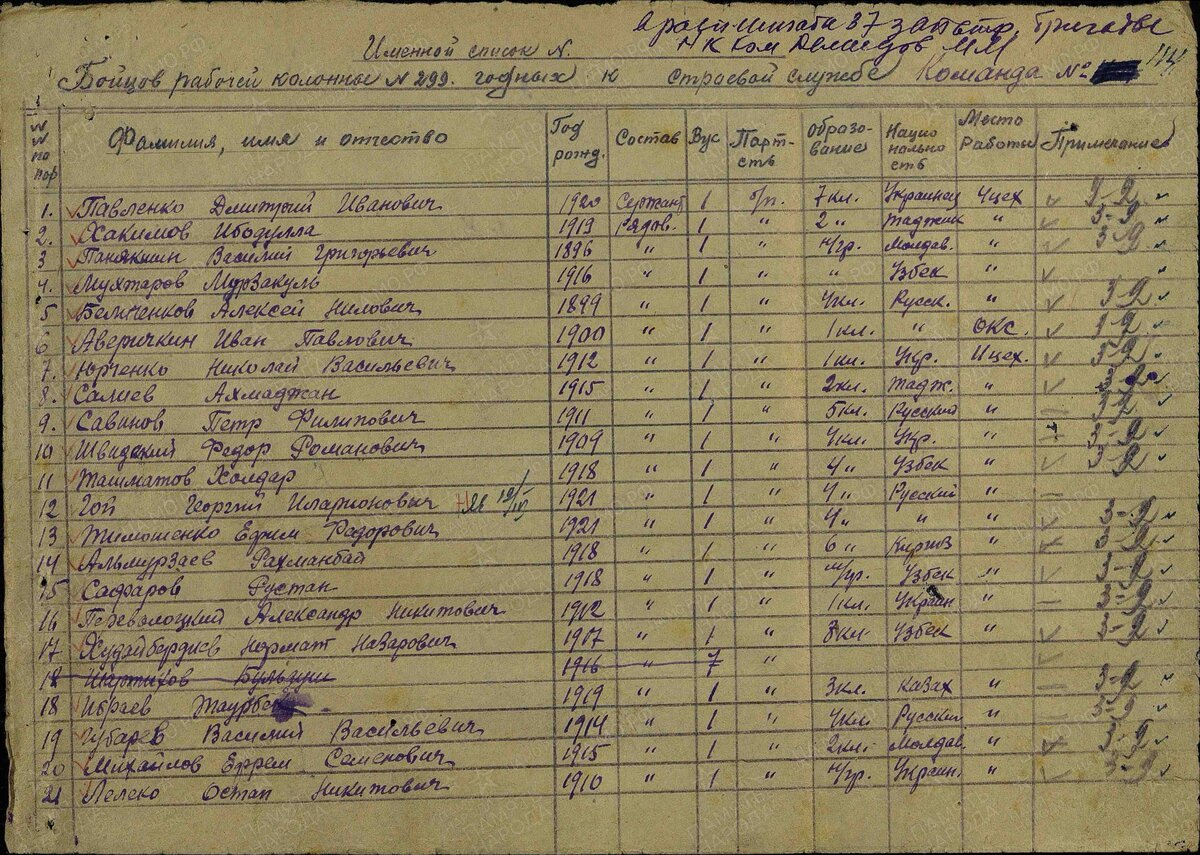 Именной список N.
Бойцов рабочей колонные N 299. годных к строевой службе Команда №
NN по пор Фамилия, имя и отчество Год рожд. Состав Вус Парт-сть Образо-вание Нацио нально сть Место Работы Примечание
1. Павленко Дмитрий Иванович 1920 Сержант 1 б/п. 7кл. Украинец Цех
2. Хакимов Ибодулла 1913 Рядов. 1 " 2 " Таджик "
3 Василий Григорьевич 1896 " 1 " н/гр. Молдав. "
4. Мухтаров Мурзакуль 1916 " 1 " " Узбек "
5 Алексей Нилович 1899 " 1 " 4кл. Русск. "
6 Аверичкин Иван Павлович 1900 " 1 " 1кл. " ОКС.
7. Юрченко Николай Васильевич 1912 " 1 " 1кл. Укр. цех.
8. Салиев Ахмаджан 1915 " 1 " 2кл. Тадж. "
9. Савинов Петр Филипович 1911 " 1 " 5кл. Русский "
10 Швидский Федор Романович 1909 " 1 " 4кл. Укр. "
11 Ташматов Холдар 1918 " 1 " 4 " Узбек "
12 Гой Георгий Иларионович 1921 " 1 " 4 " Русский "
13 Тимошенко Ефим Федорович 1921 " 1 " 4 " " "
14 Альмурзаев Рахманбай 1918 " 1 " 6 " Киргиз "
15 Сафаров Рустан 1918 " 1 " н/гр. Узбек "
16 Переволоцкий Александр Никитович 1912 " 1 " 1кл. Украин "
17 Худайбердиев Нормат Назарович 1917 " 1 " 8кл. Узбек "
18 1916 " 7 "
18 Ибраев 1919 " 1 " 3кл. Казах "
19 Губарев Василий Васильевич 1914 " 1 " 4кл Русский "
20 Михайлов Ефрем Семенович 1915 " 1 " 2кл. Молдав. "
21 Лелеко Остап Никитович 1910 " 1 " н/гр. Украин. "